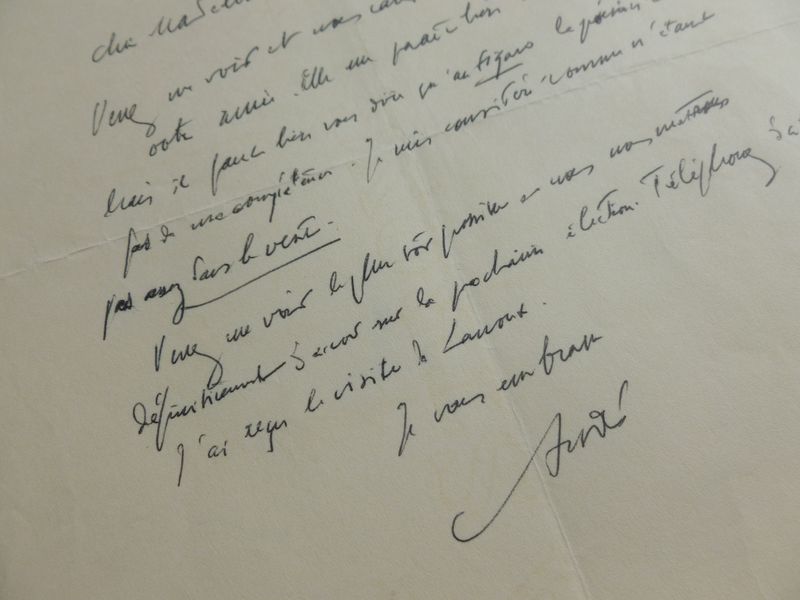 Venez me voir et nous
votre amie. Elle un bien
Mais il faut bien vous dire qu'au Figaro le
pas de ma compétence. Je suis considéré comme n'étant
pas assez dans le vent.
Venez me voir le plus tôt possible nous nous mettrons
définitivement d'accord sur la prochaine élection. Téléphonez
J'ai reçu la visite de Lanoux.
Je vous embrasse
André